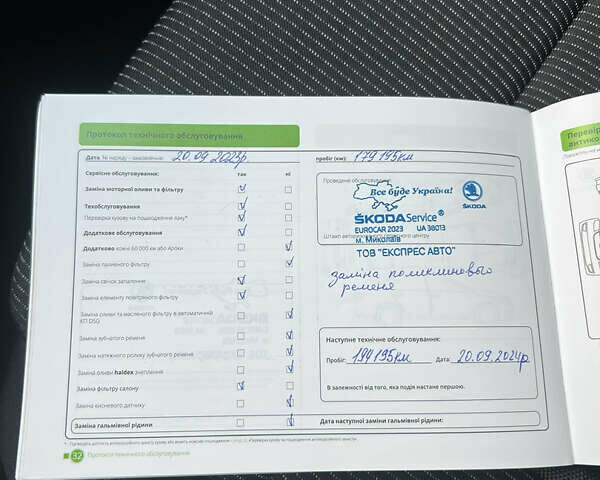 Протокол технічного обслуговування
Дата, № наряду – замовлення: 20.09.2023р.
пробіг (км): 179 195км
Сервісне обслуговування: так ні
Заміна моторної оливи та фільтру
Техобслуговування
Перевірка кузову на пошкодження лаку*
Додаткове обслуговування
Додатково кожні 60 000 км або 4роки
Заміна паливного фільтру
Заміна свічок запалення
Заміна елементу повітряного фільтру
Заміна оливи та масляного фільтру в автоматичній
КП DSG
Заміна зубчатого ременя
Заміна натяжного ролику зубчатого ременя
Заміна оливи haldex зчеплення
Заміна фільтру салону
Заміна кисневого датчику
Заміна гальмівної рідини:
Проведене обслуговування
Все буде Україна!
ŠKODA Service®
ŠKODA
EUROCAR 2023 UA 38013
м. Миколаїв
Штамп авторизованого сервісного центру
ТОВ "ЕКСПРЕС АВТО"
заміна поликлинового
ременя
Наступне технічне обслуговування:
Пробіг: 194 195км Дата: 20.09.2024р.
В залежності від того, яка подія настане першою.
Дата наступної заміни гальмівної рідини:
32 Протокол технічного обслуговування
Перевір
антико